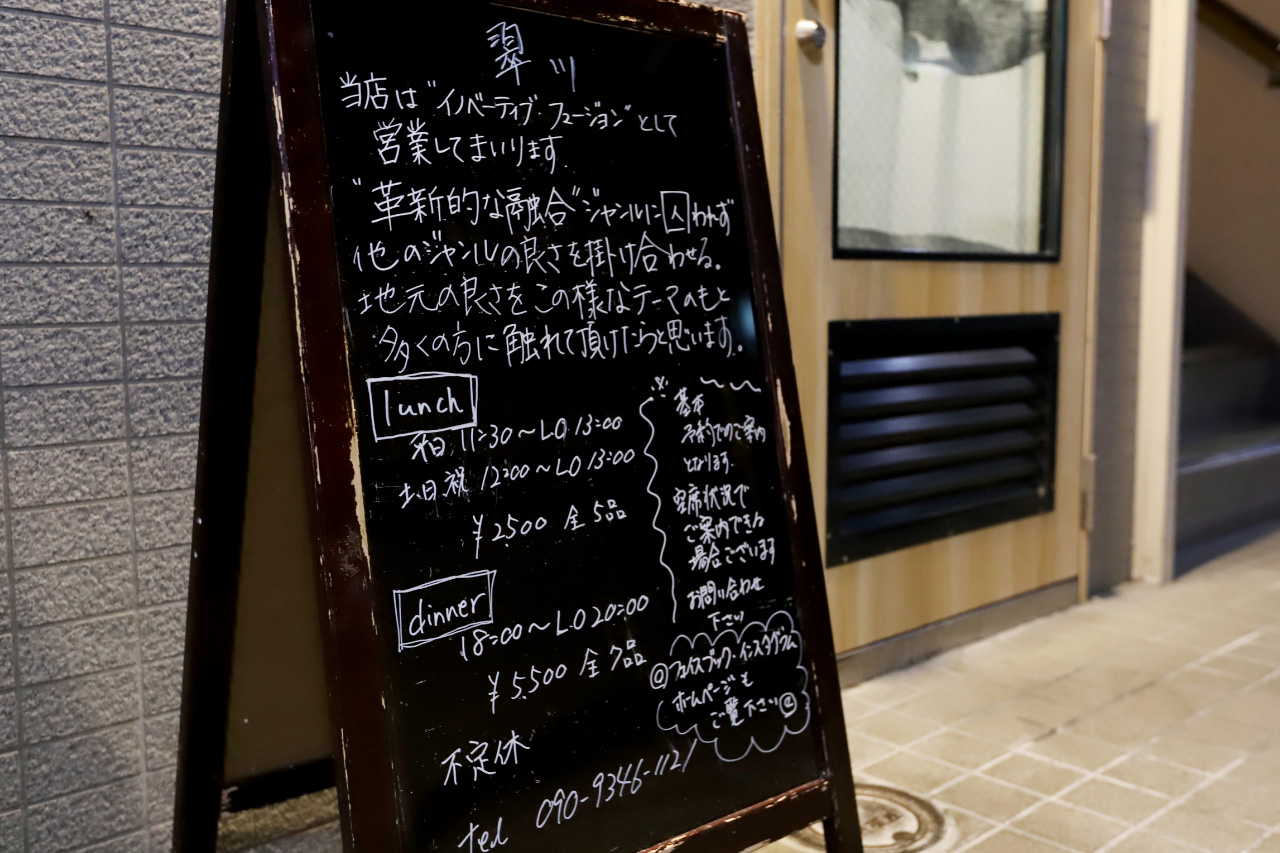 翠
当店は"イノベーティブ・フュージョン"として
営業してまいります。
"革新的な融合"ジャンルに囚われず
他のジャンルの良さを掛け合わせる。
地元の良さをこの様なテーマのもと
多くの方に触れて頂けたらと思います。
lunch
11:30～LO 13:00
土日祝 12:00～LO 13:00
¥2500 全5品
dinner
18:00～L.O 20:00
¥5,500 全7品
不定休
tel 090-9346-1121
※基本
予約でのご案内
となります。
空席状況で
ご案内できる
場合ございます
お問い合わせ
下さい
@フェイスブック・インスタグラム
ホームページも
ご覧下さい@